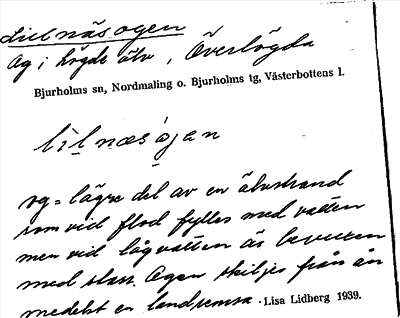 Lillnäsogen
Og i Lögde älv, Överlögda
Bjurholms sn, Nordmaling o. Bjurholms tg, Västerbottens l.
lilnæsogen
og = lägre del av en älvstrand
som vid flod fylles med vatten
men vid lågvatten är bevuxen
med starr. Ogen skiljes från ån
medelst en landremsa. Lisa Lidberg 1939.